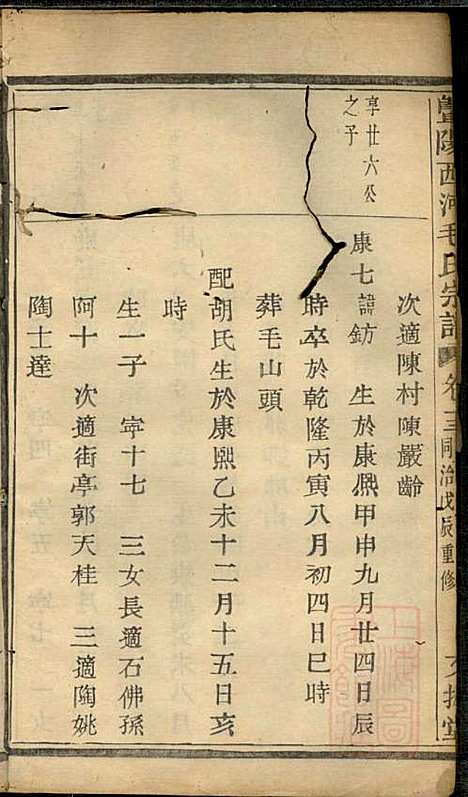 暨陽西河毛氏宗譜 卷之三 同治戊辰重修
次適陳村陳嚴齡
享廿六公
之子
康七諱鈁 生於康熙甲申九月廿四日辰
時卒於乾隆丙寅八月初四日巳時
葬毛山頭
配胡氏生於康熙乙未十二月十五日亥
時
生一子 寜十七 三女長適石佛孫
阿十 次適街亭郭天桂 三適陶姚
陶士達